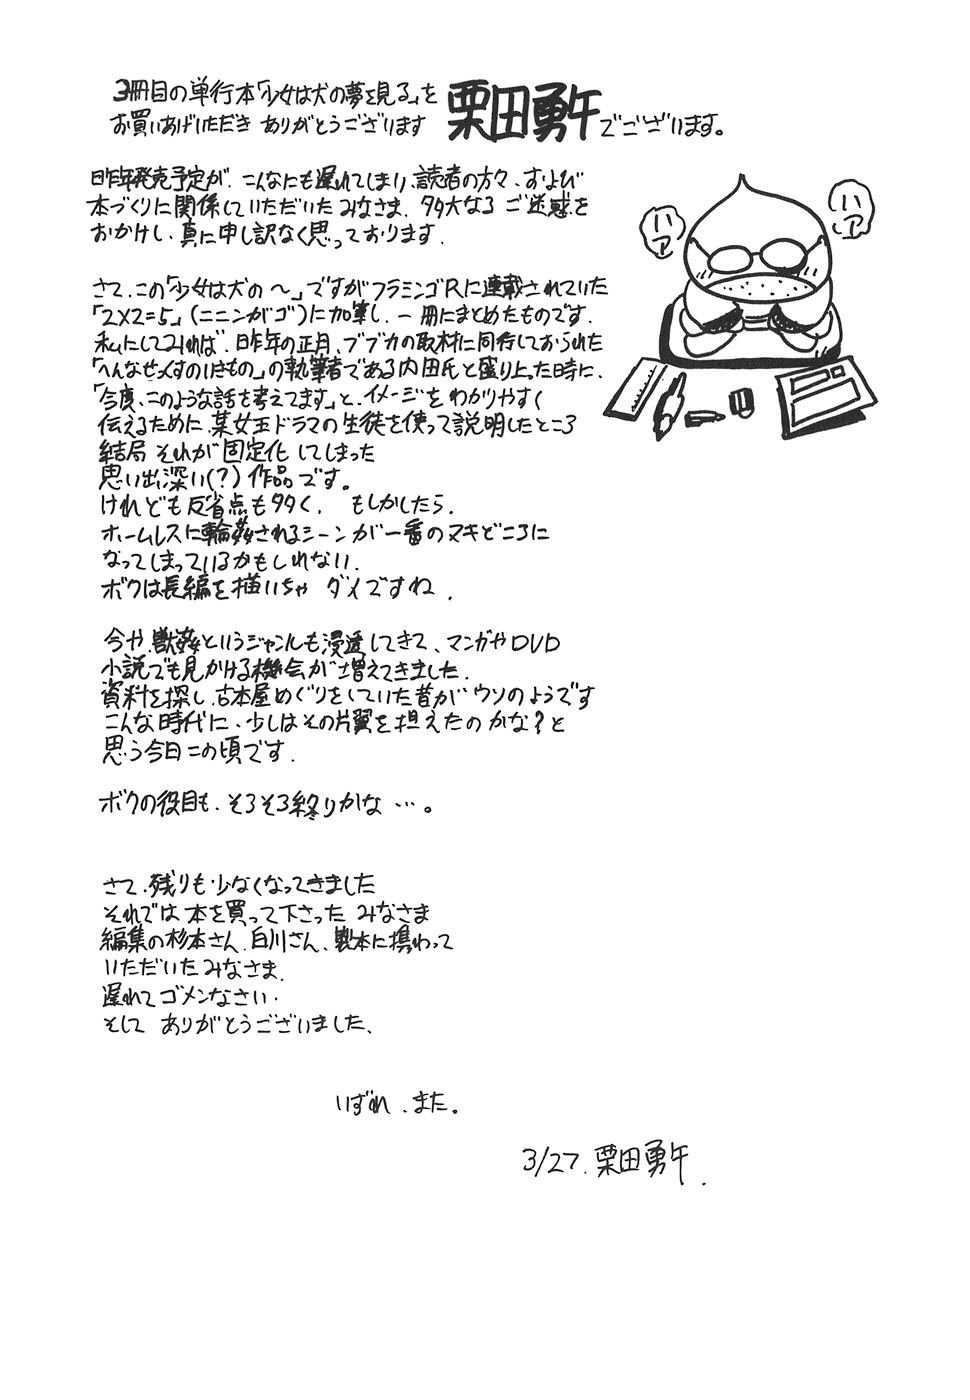 3冊目の単行本「少女は犬の夢を見る」を
お買いあげいただき ありがとうございます
栗田勇午でございます。
ハァ
ハァ
昨年発売予定が、こんなにも遅れてしまい、読者の方々、および
本づくりに関係していただいたみなさま、多大なるご迷惑を
おかけし、真に申し訳なく思っております.
さて、この「少女は犬の〜」ですがフラミンゴRに連載されていた
「2×2=5」(ニニンがゴ)に加筆し、一冊にまとめたものです.
私にしてみれば、昨年の正月、ブブカの取材に同行しておられた
「へんなせっくすのいきもの」の執筆者である内田氏と盛り上った時に、
「今度、このような話を考えてます」と、イメージをわかりやすく
伝えるために、某女王ドラマの生徒を使って説明したところ
結局 それが固定化してしまった
思い出深い(?)作品です。
けれども反省点も多く、もしかしたら、
ホームレスに輪姦されるシーンが一番のヌキどころに
なってしまっているかもしれない.
ボクは長編を描いちゃ ダメですね.
今や、獣姦というジャンルも浸透してきて、マンガやDVD
小説でも見かける機会が増えてきました.
資料を探し、古本屋めぐりをしていた昔が ウソのようです
こんな時代に、少しはその片翼を担えたのかな?と
思う今日この頃です.
ボクの役目も、そろそろ終りかな…。
さて、残りも少なくなってきました
それでは 本を買って下さった みなさま
編集の杉本さん、白川さん、製本に携わって
いただいたみなさま.
遅れてゴメンなさい.
そして ありがとうございました.
いずれ、また。
3/27. 栗田勇午.